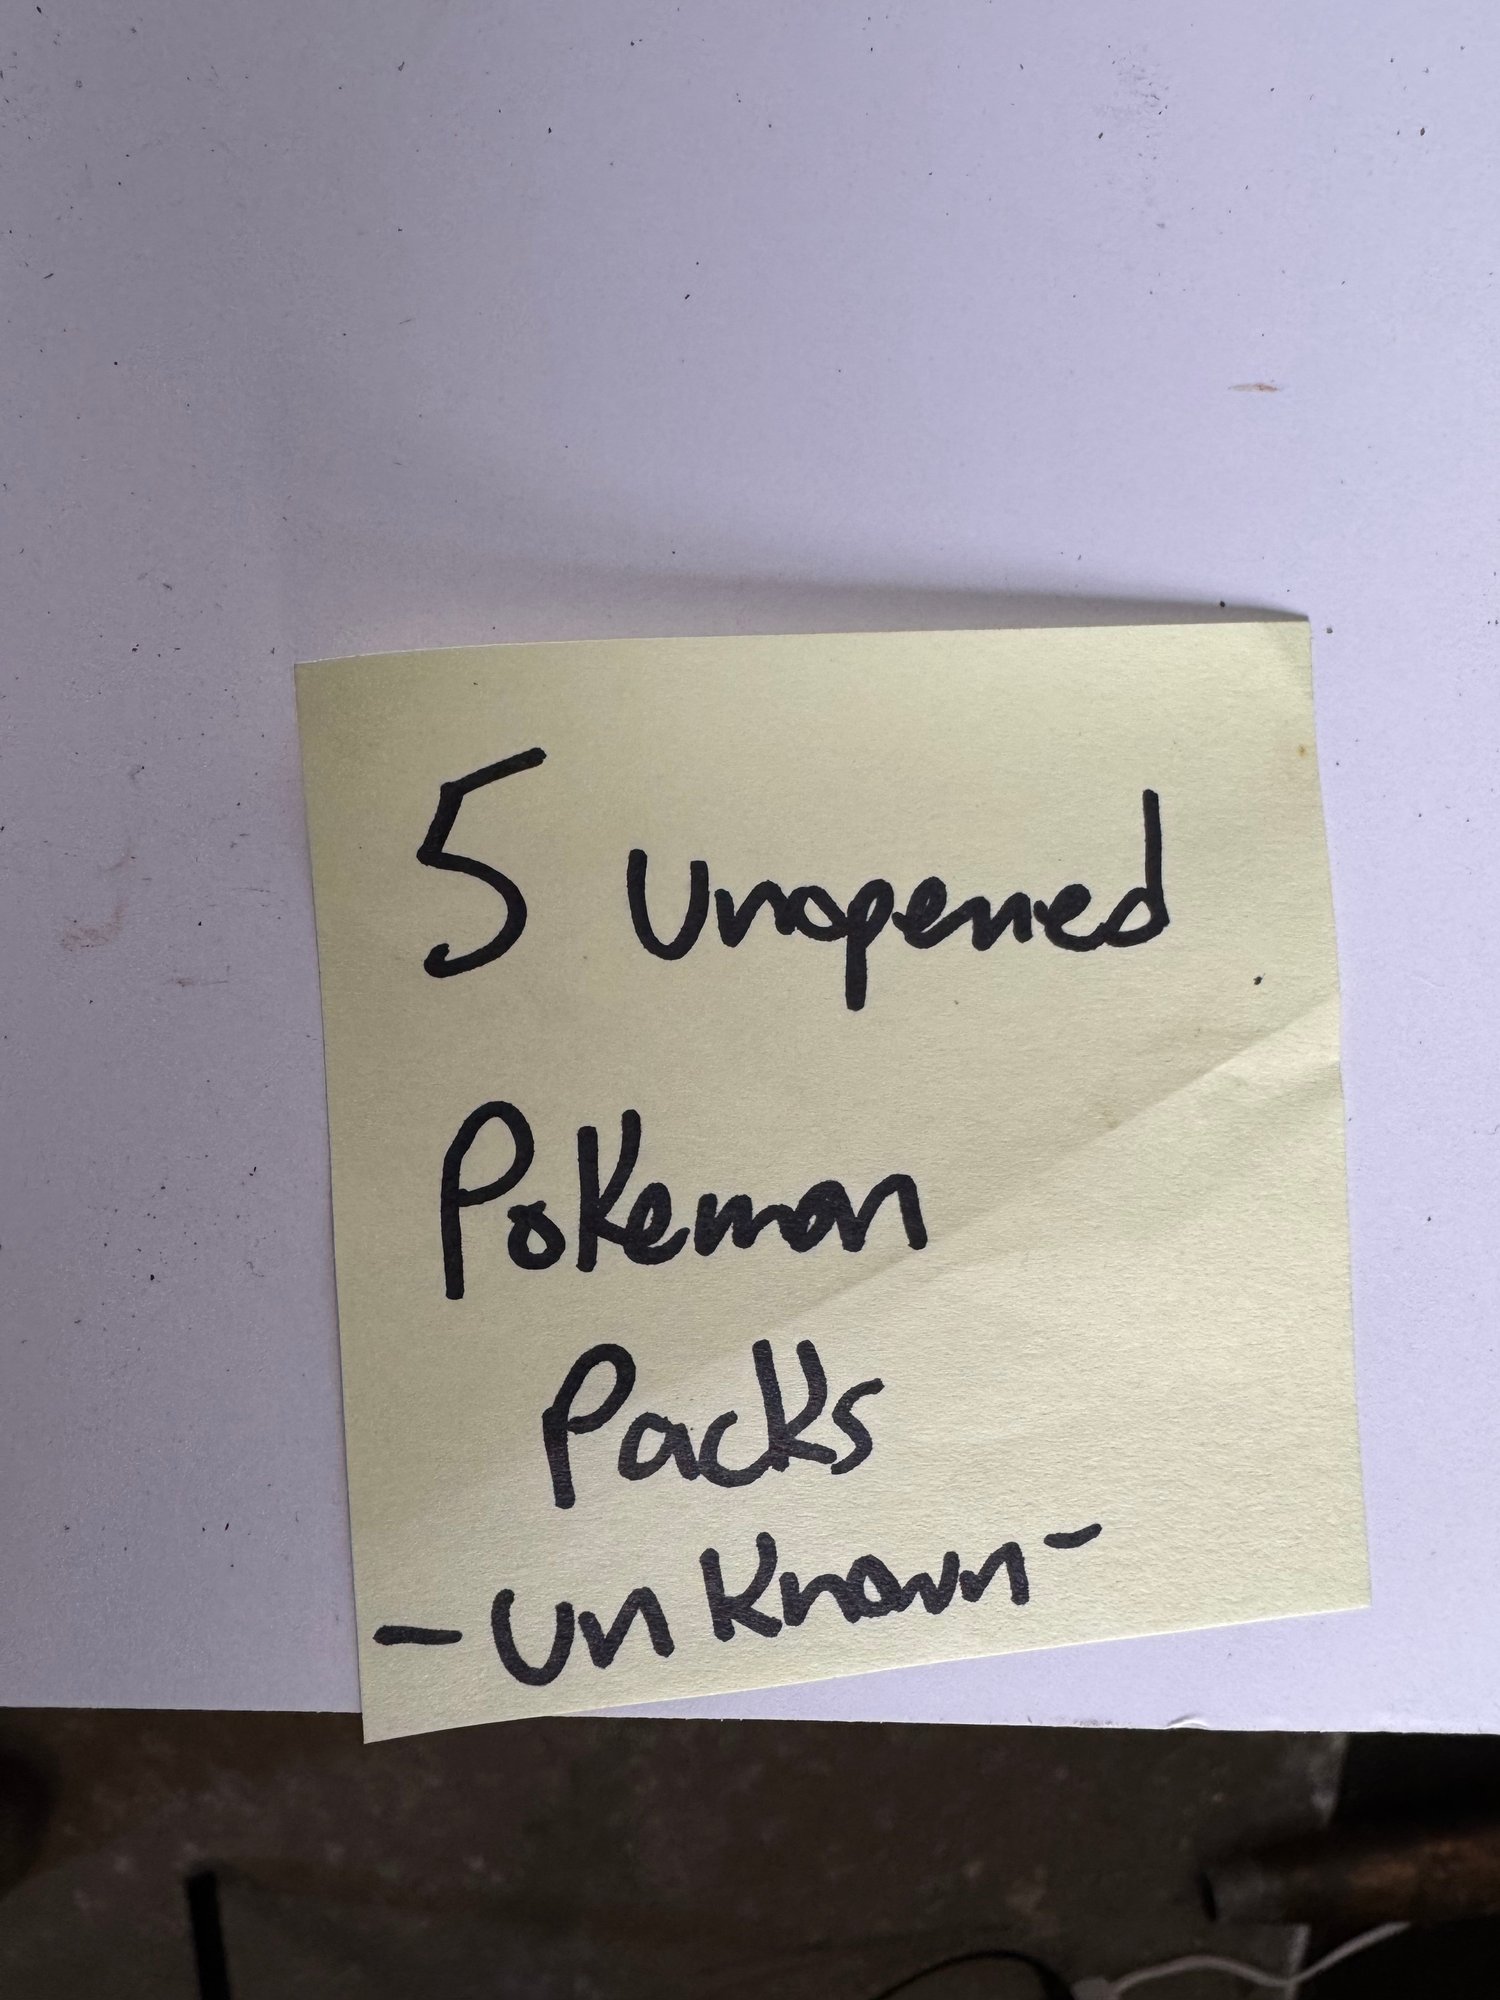 5 unopened
Pokemon
Packs
- unknown -